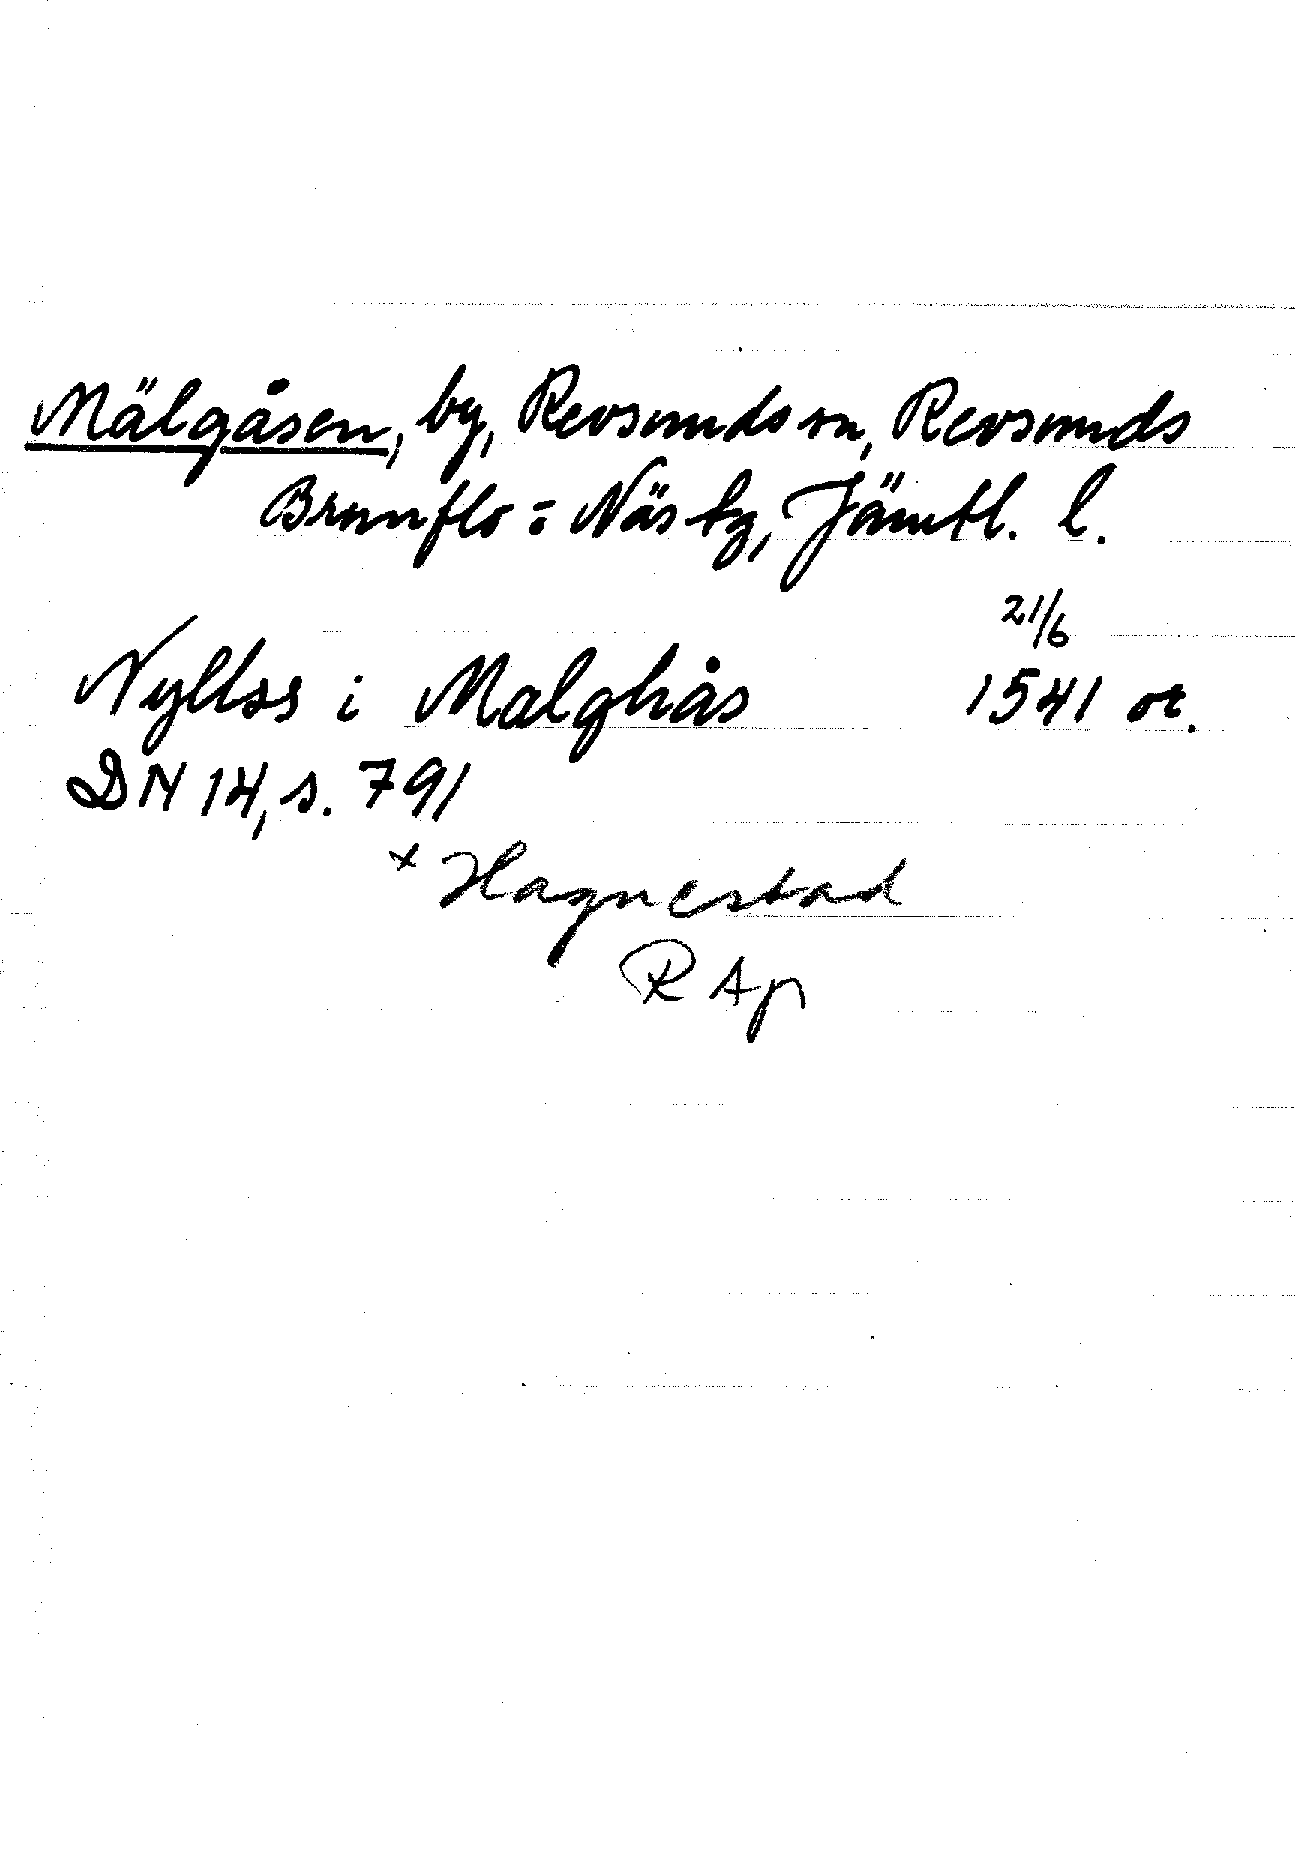 Mälgåsen, by, Revsunds sn, Revsunds
Brunflo = Näs tg, Jämtl. l.
21/6
Nyllss i Malghås 1541 or.
DN 14, s. 791
x Hagnestad
R Ap